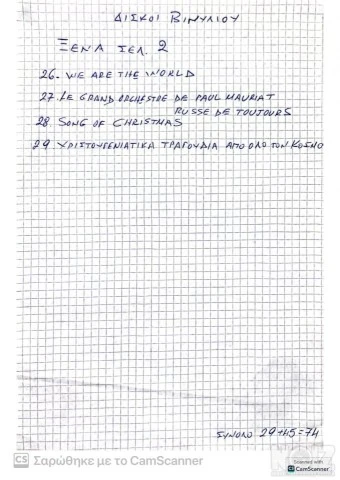 ΔΙΣΚΟΙ ΒΙΝΥΛΙΟΥ
ΞΕΝΑ ΣΕΛ. 2
26. WE ARE THE WORLD
27 LE GRAND ORCHESTRE DE PAUL MAURIAT
RUSSE DE TOUJOURS
28 SONG OF CHRISTMAS
29 ΧΡΙΣΤΟΥΓΕΝΙΑΤΙΚΑ ΤΡΑΓΟΥΔΙΑ ΑΠΟ ΟΛΟ ΤΟΝ ΚΟΣΜΟ
ΣΥΝΟΛΟ 29+45=74
CS Σαρώθηκε με το CamScanner
Scanned with
CS CamScanner